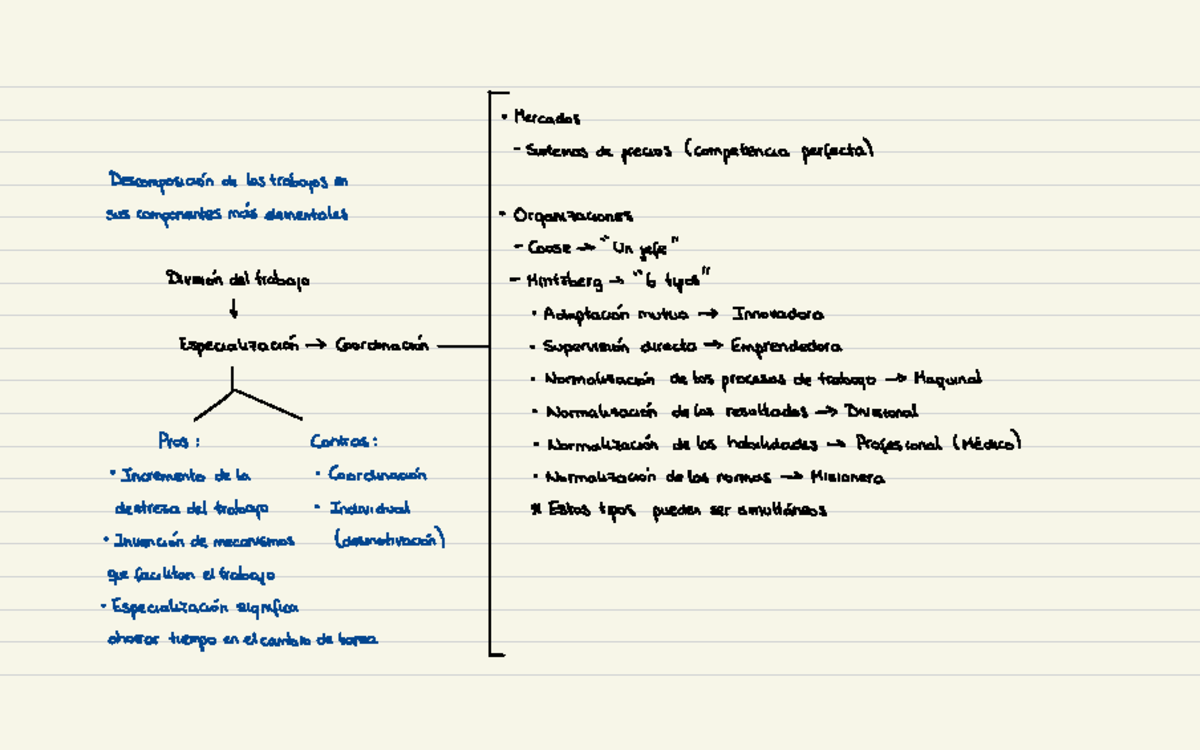 Descomposición de los trabajos en
sus componentes más elementales
División del trabajo
↓
Especialización → Coordinación
Pros:
• Incremento de la
destreza del trabajo
• Invención de mecanismos
que facilitan el trabajo
• Especialización significa
ahorrar tiempo en el cambio de tarea
Contras:
• Coordinación
• Individual
(desmotivación)
• Mercados
- Sistemas de precios (competencia perfecta)
• Organizaciones
- Coase → "Un jefe"
- Mintzberg → "6 tipos"
• Adaptación mutua → Innovadora
• Supervisión directa → Emprendedora
• Normalización de los procesos de trabajo → Maquinal
• Normalización de los resultados → Divisional
• Normalización de las habilidades → Profesional (Médico)
• Normalización de las normas → Misionera
* Estos tipos pueden ser simultáneos